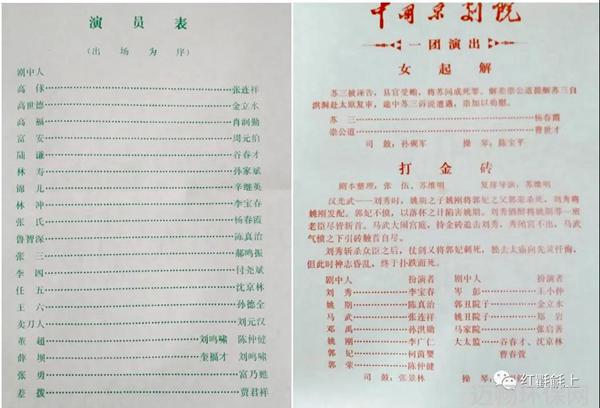 演员表
(出场为序)
剧中人
高俅……张连祥
高世德……金立水
高福……肖润勤
富安……周元伯
陆谦……谷春才
林寿……孙家斌
锦儿……辛继英
林冲……李宝春
张氏……杨春霞
鲁智深……陈真治
张三……郝鸣振
李四……付尧斌
任五……沈京林
王六……孙德全
卖刀人……刘元汉
董超……刘鸣啸 陈仲健
薛坝……奎福才 刘鸣啸
张勇……富乃甦
差拨……贾君祥
中国京剧院
一团演出
女起解
苏三被诬告,县官受贿,将苏问成死罪。解差崇公道提解苏三自
洪洞赴太原复审,途中苏三诉说遭遇,崇加以劝慰。
苏三……杨春霞
崇公道……曹世才
司鼓:孙砚军 操琴:陈宝平
打金砖
剧本整理:张伍、苏维明 复排导演:苏维明
汉光武——刘秀时,姚期之子姚刚将郭妃之父郭荣杀死,刘秀将
姚刚发配。郭妃不愤,以落杯之计陷害姚期。刘秀酒醉将姚期等一班
老臣尽皆斩首。马武大闹宫庭,持金砖追击刘秀,秀闭宫不出,马武
气愤之下引砖触首自尽。
刘秀斩杀众臣之后,仗剑又将郭妃刺死,独去太庙向先灵忏悔,
但此时神志昏乱,终于扑跌而死。
剧中人 扮演者 剧中人 扮演者
刘秀……李宝春 岑彭……王小仲
姚期……陈真治 郭丑院子……金立水
马武……张连祥 姚丑院子……郑岩
邓禹……孙洪勋 马家院……张启善
姚刚……李广仁 大太监……谷春才、沈京林
郭妃……柯茵婴 曹春萱
郭荣……陈仲健
司鼓:张景林 操琴:
红氍毹上